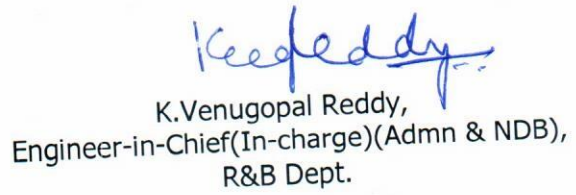 K.Venugopal Reddy,
Engineer-in-Chief(In-charge)(Admn & NDB),
R&B Dept.